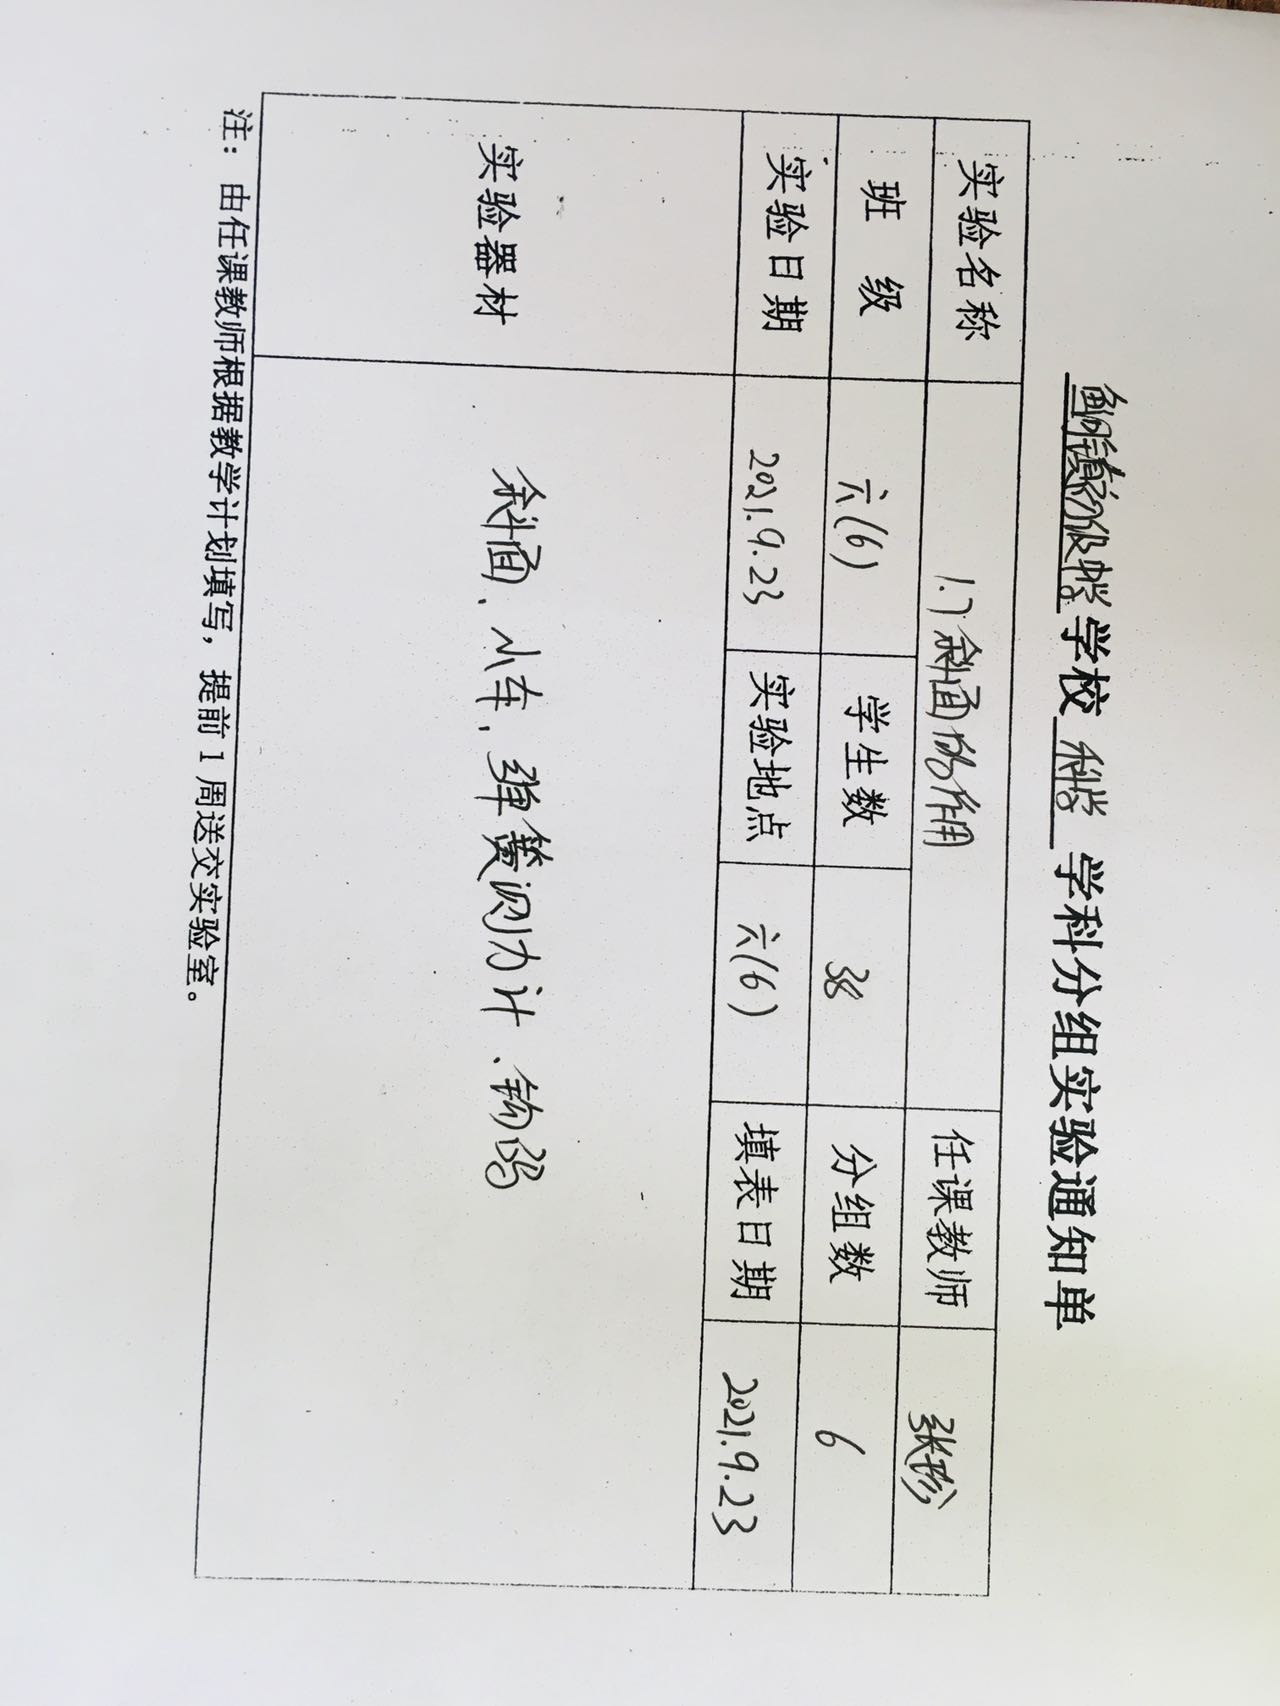 学校 科学 学科分组实验通知单
实验名称 1.7斜面的作用 任课教师 张珍
班 级 六(6) 学生数 38 分组数 6
实验日期 2021.9.23 实验地点 六(6) 填表日期 2021.9.23
实验器材 斜面、小车、弹簧测力计、钩码
注：由任课教师根据教学计划填写，提前1周送交实验室。